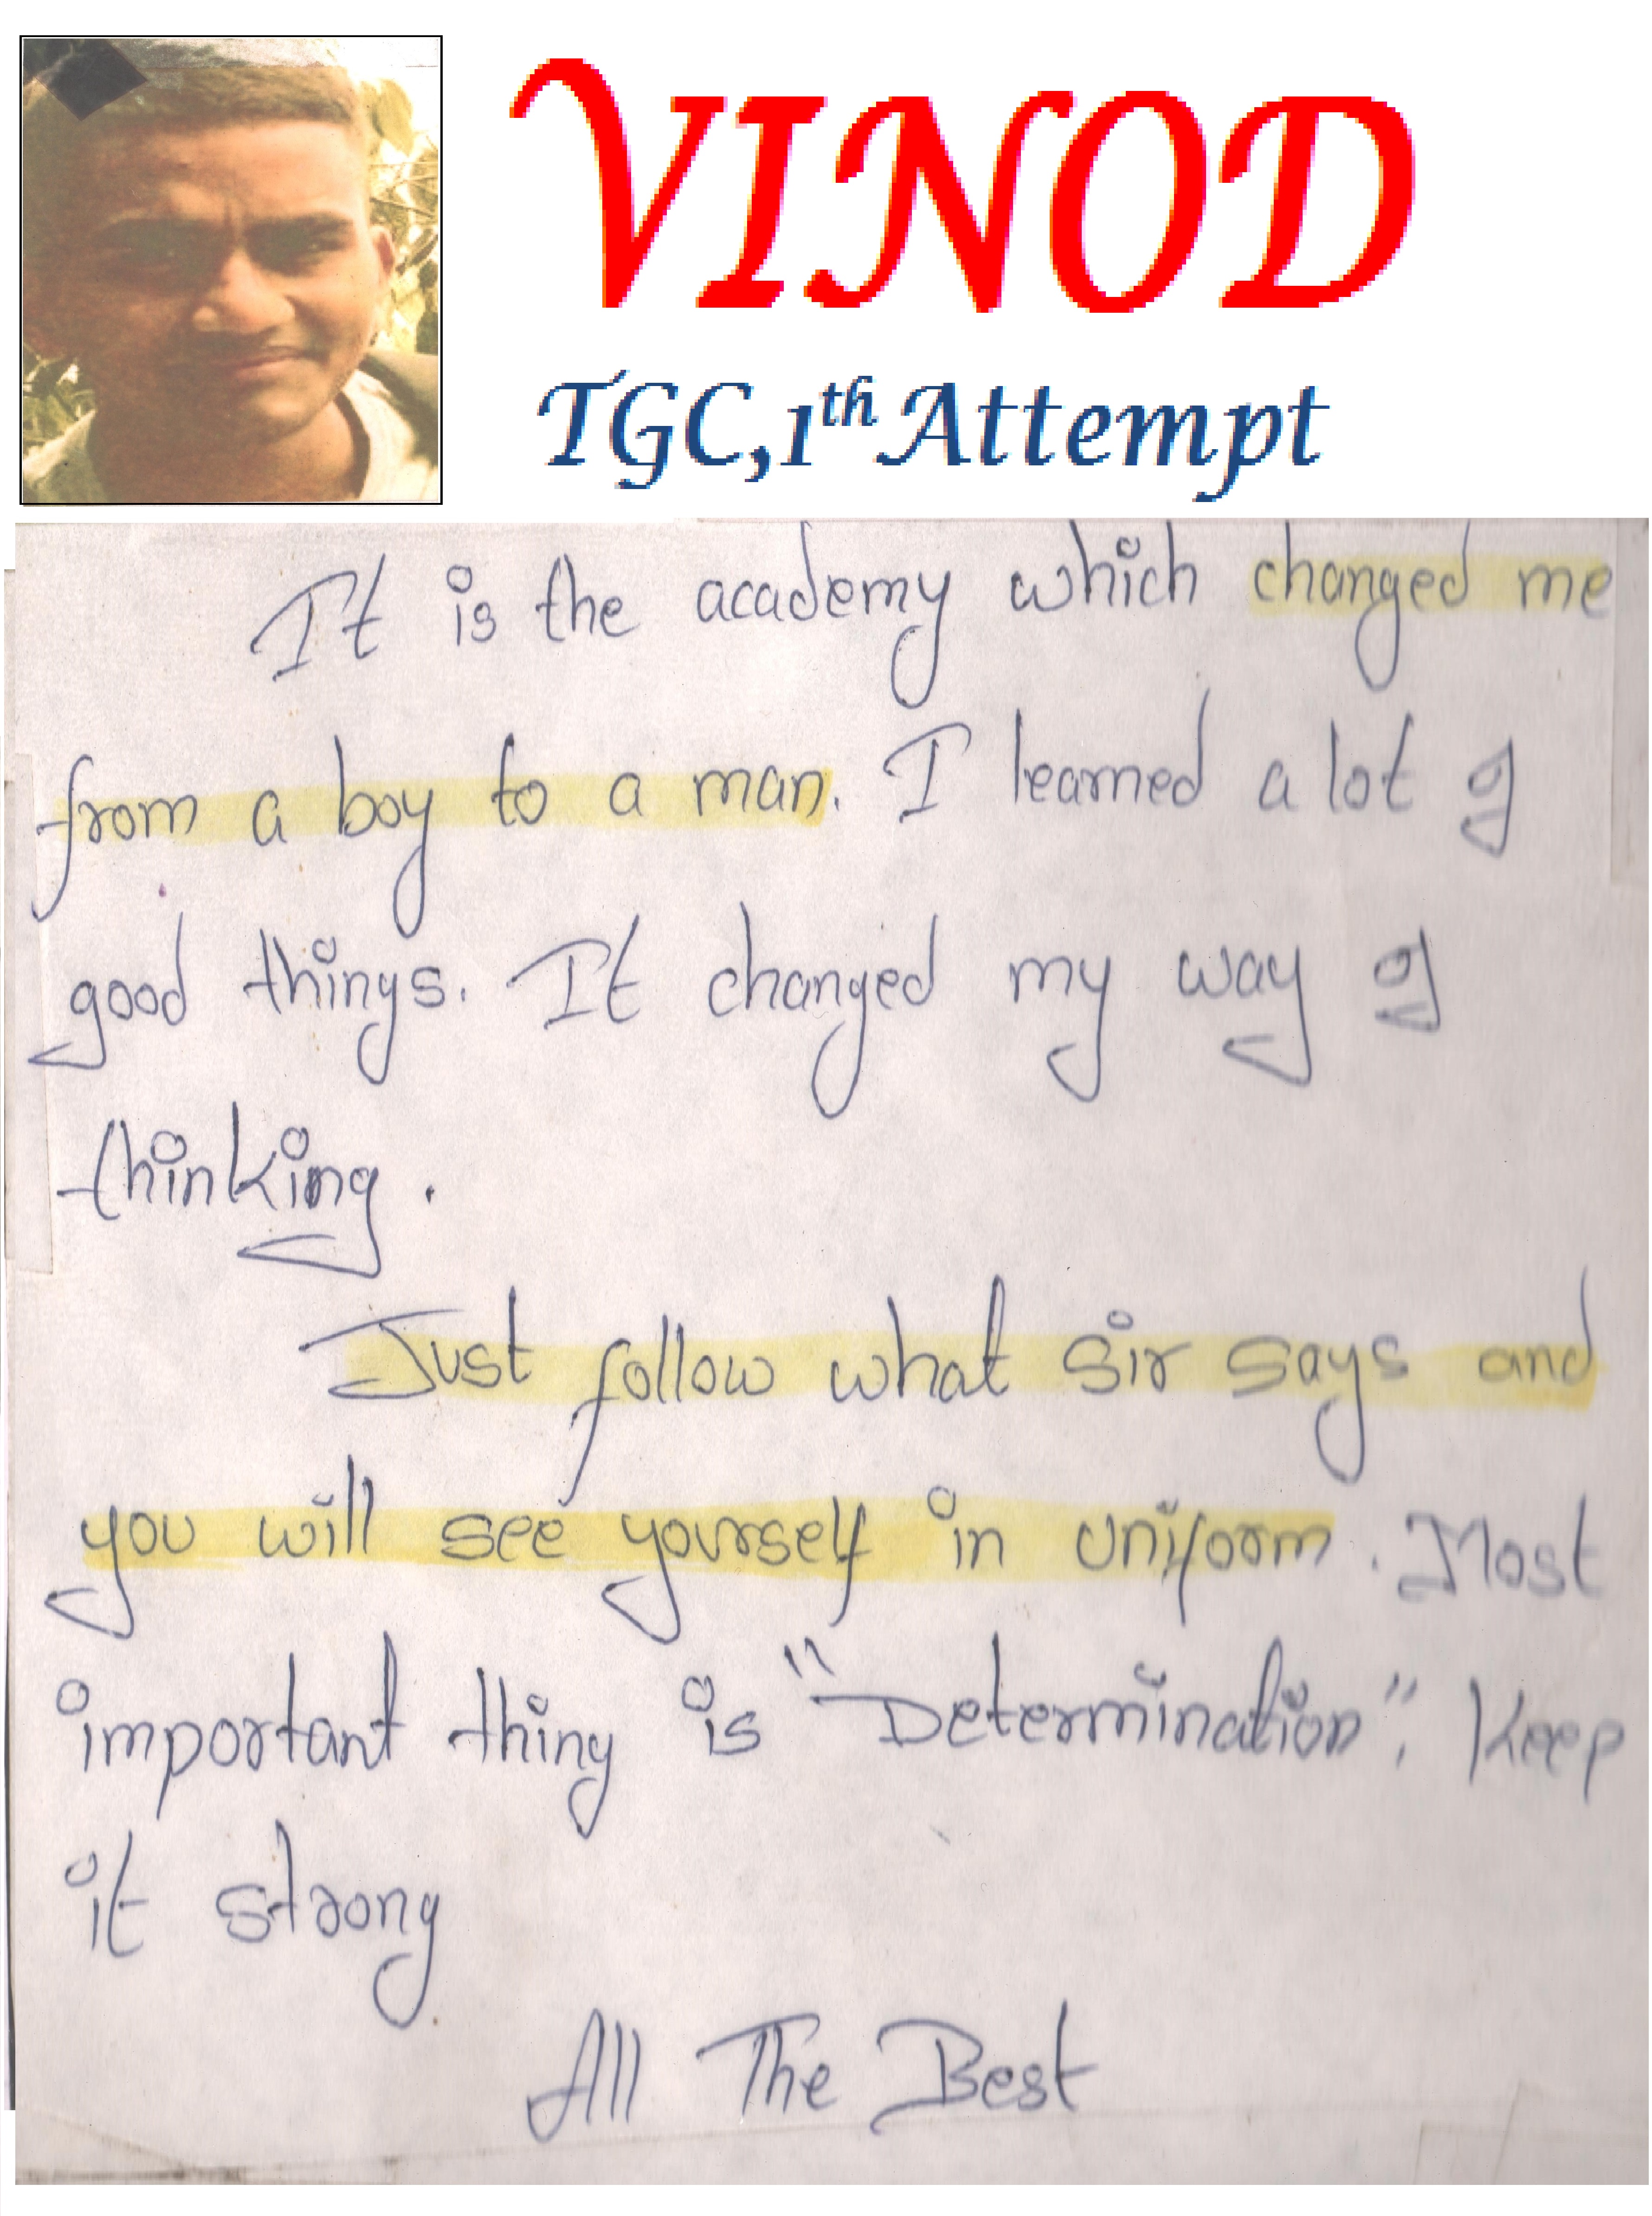 VINOD
TGC,1th Attempt
It is the academy which changed me
from a boy to a man. I learned a lot of
good things. It changed my way of
thinking.
Just follow what sir says and
you will see yourself in uniform. Most
important thing is "Determination". Keep
it strong
All The Best